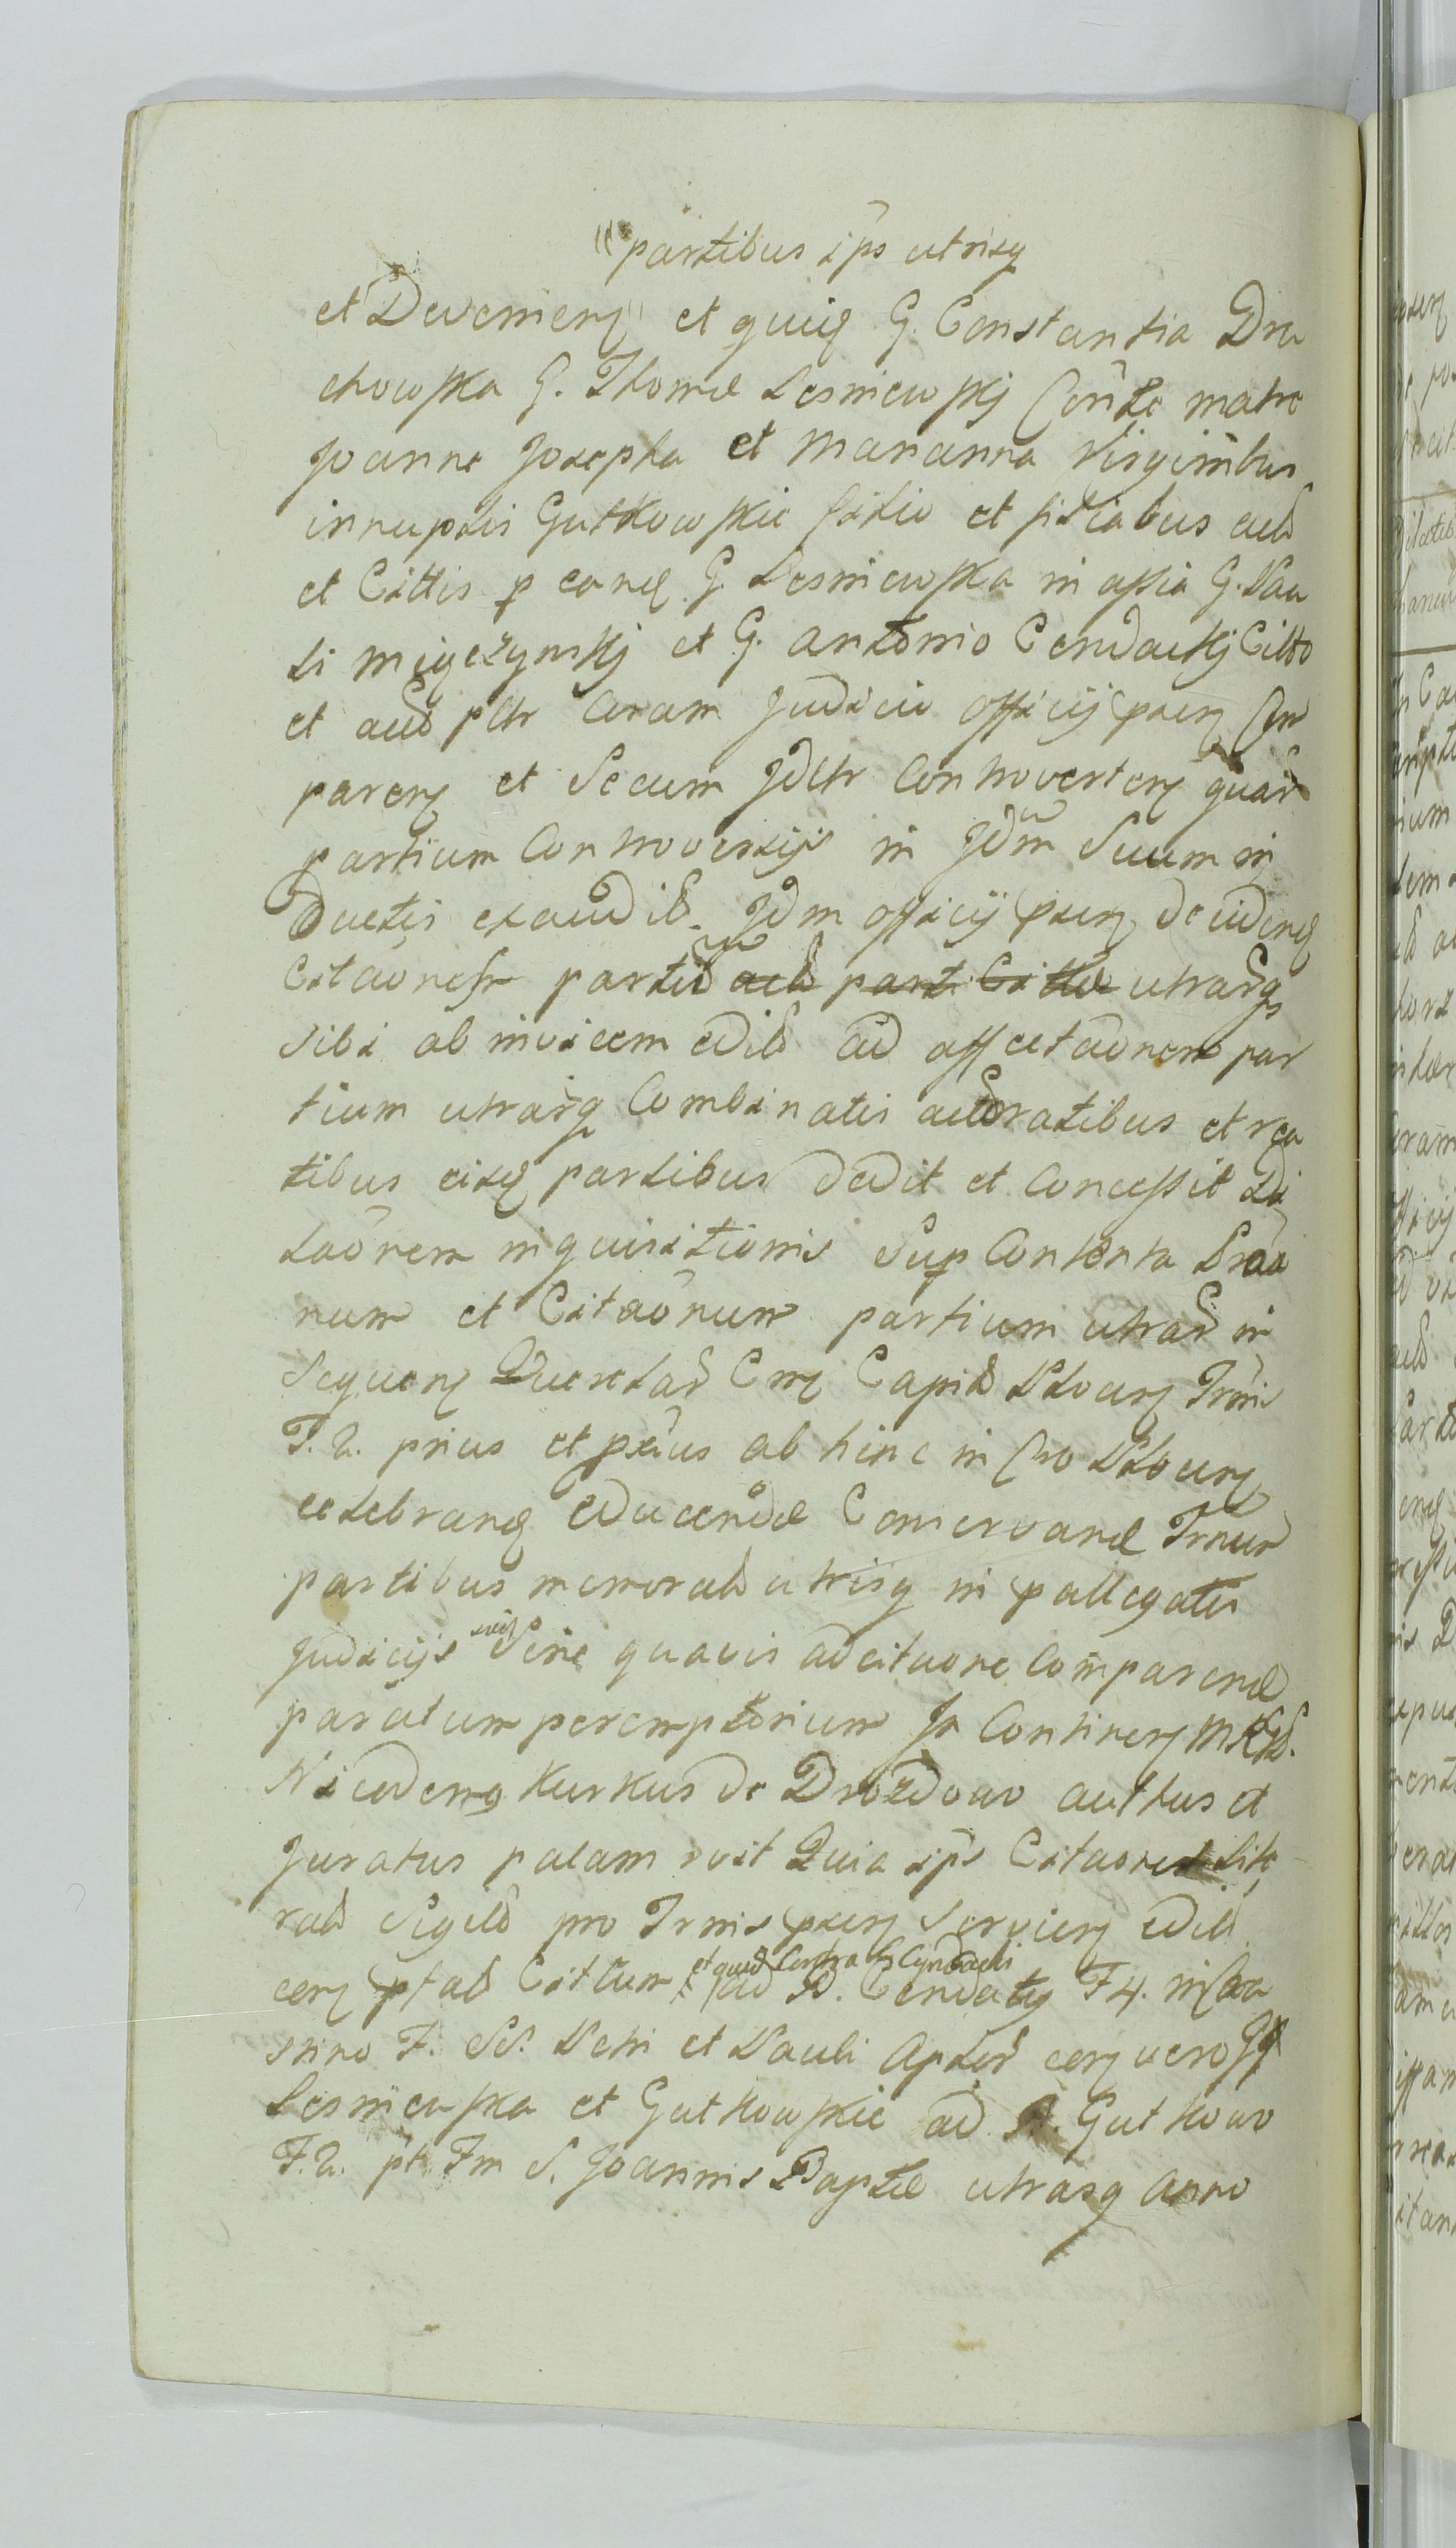 "partibus ips utrisq
et Devenien" et quid G. Constantia Dra
chowska G. Thomæ Lesniewskj Conte matre
Joanne Josepha et Marianna Virginibus
innuptis Gutkowskie filio et filiabus
et Cittis p eand G. Lesniewska in assia G. Pau
li Migczynskj et G. Antonio Cendackj Citto
et pltr Coram Judicio officij pnen Com
paren et Secum Jdltr Controverten quar
partium Controversijs in Jdm Suum in
Ductis exaudit. Jdm officij pnen decidend
Citaones partiu part Cittæ utrasq
sibi ab invicem edit ad affectaonem par
tium utrarq Combinatis actoratibus et rea
tibus eisd partibus dedit et Concessit Di
laonem inquisitionis Sup Contenta
num et Citaonum partium utrarq in
Sequen Querelar Cen Capit Plocen Trmi
F. 2. prius et pxius ab hinc in Cro Plocen
celebrand educendæ Conservand Trnum
partibus memorat utrisq in pallegatis
Judicijs suis Sine quavis adcitaone Comparend
paratum peremptorium In Continen
Nicodemg Kurkus de Drozdowo authus et
Juratus palam rcit Quia ips Citaones Litte
rat Sigilt pro Trmis pnen Servien edit
cen ptad Cittum et quid Contra G Cyndacki ad B. Cendaty F 4. in Cra
stino F. SS. Petri et Pauli Apler cen vero GG
Lesniewska et Gutkowskie ad B. Gutkowo
F. 2. pt Fm S. Joannis Baptæ utrasq Anno